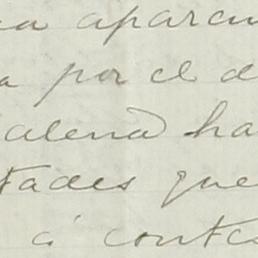 ca aparcu
a por el d
alena ha
tades que
á conte